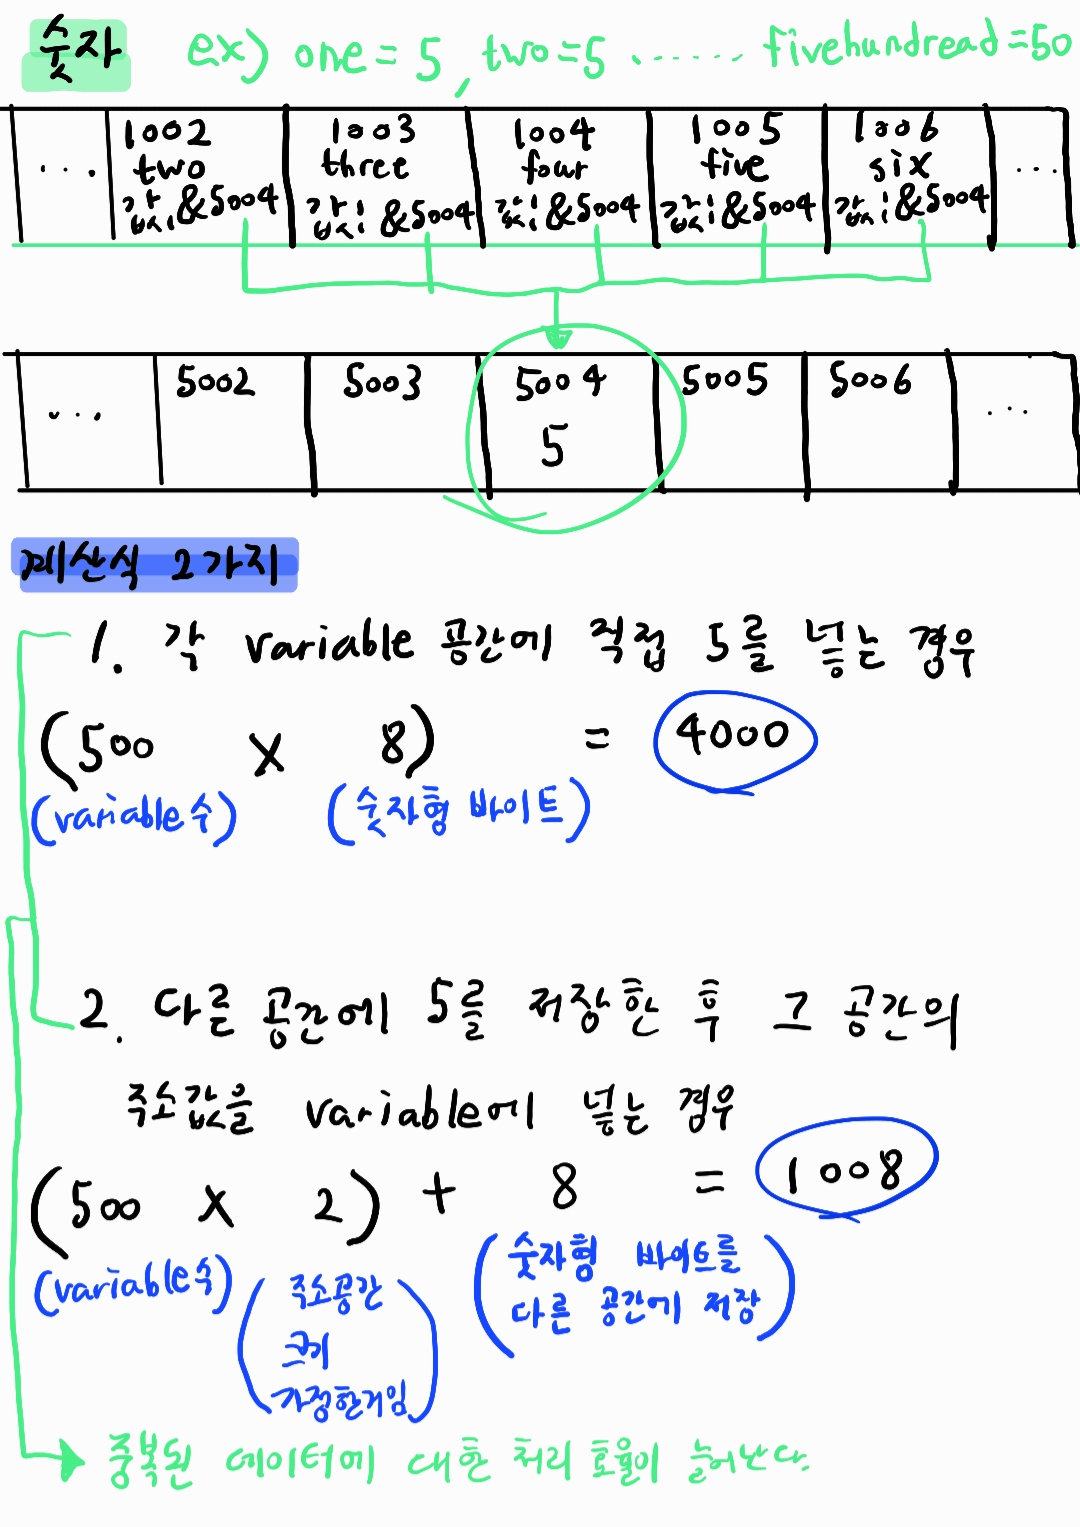 숫자 ex) one = 5, two=5 ....... fivehundread=50
... 1002 1003 1004 1005 1006 ...
two three four five six
값: &5004 값: &5004 값: &5004 값: &5004 값: &5004
... 5002 5003 5004 5005 5006 ...
5
계산식 2가지
1. 각 variable 공간에 직접 5를 넣는 경우
(500 X 8) = 4000
(variable 수) (숫자형 바이트)
2. 다른 공간에 5를 저장한 후 그 공간의
주소값을 variable에 넣는 경우
(500 X 2) + 8 = 1008
(variable 수) (주소공간 크기 가정한거임) (숫자형 바이트를 다른 공간에 저장)
중복된 데이터에 대한 처리 효율이 늘어난다.